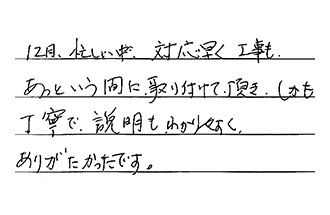 12月、忙しい中、対応早く工事も
あっという間に、取り付けて頂き、しかも
丁寧で、説明も、わかりやすく、
ありがたかったです。